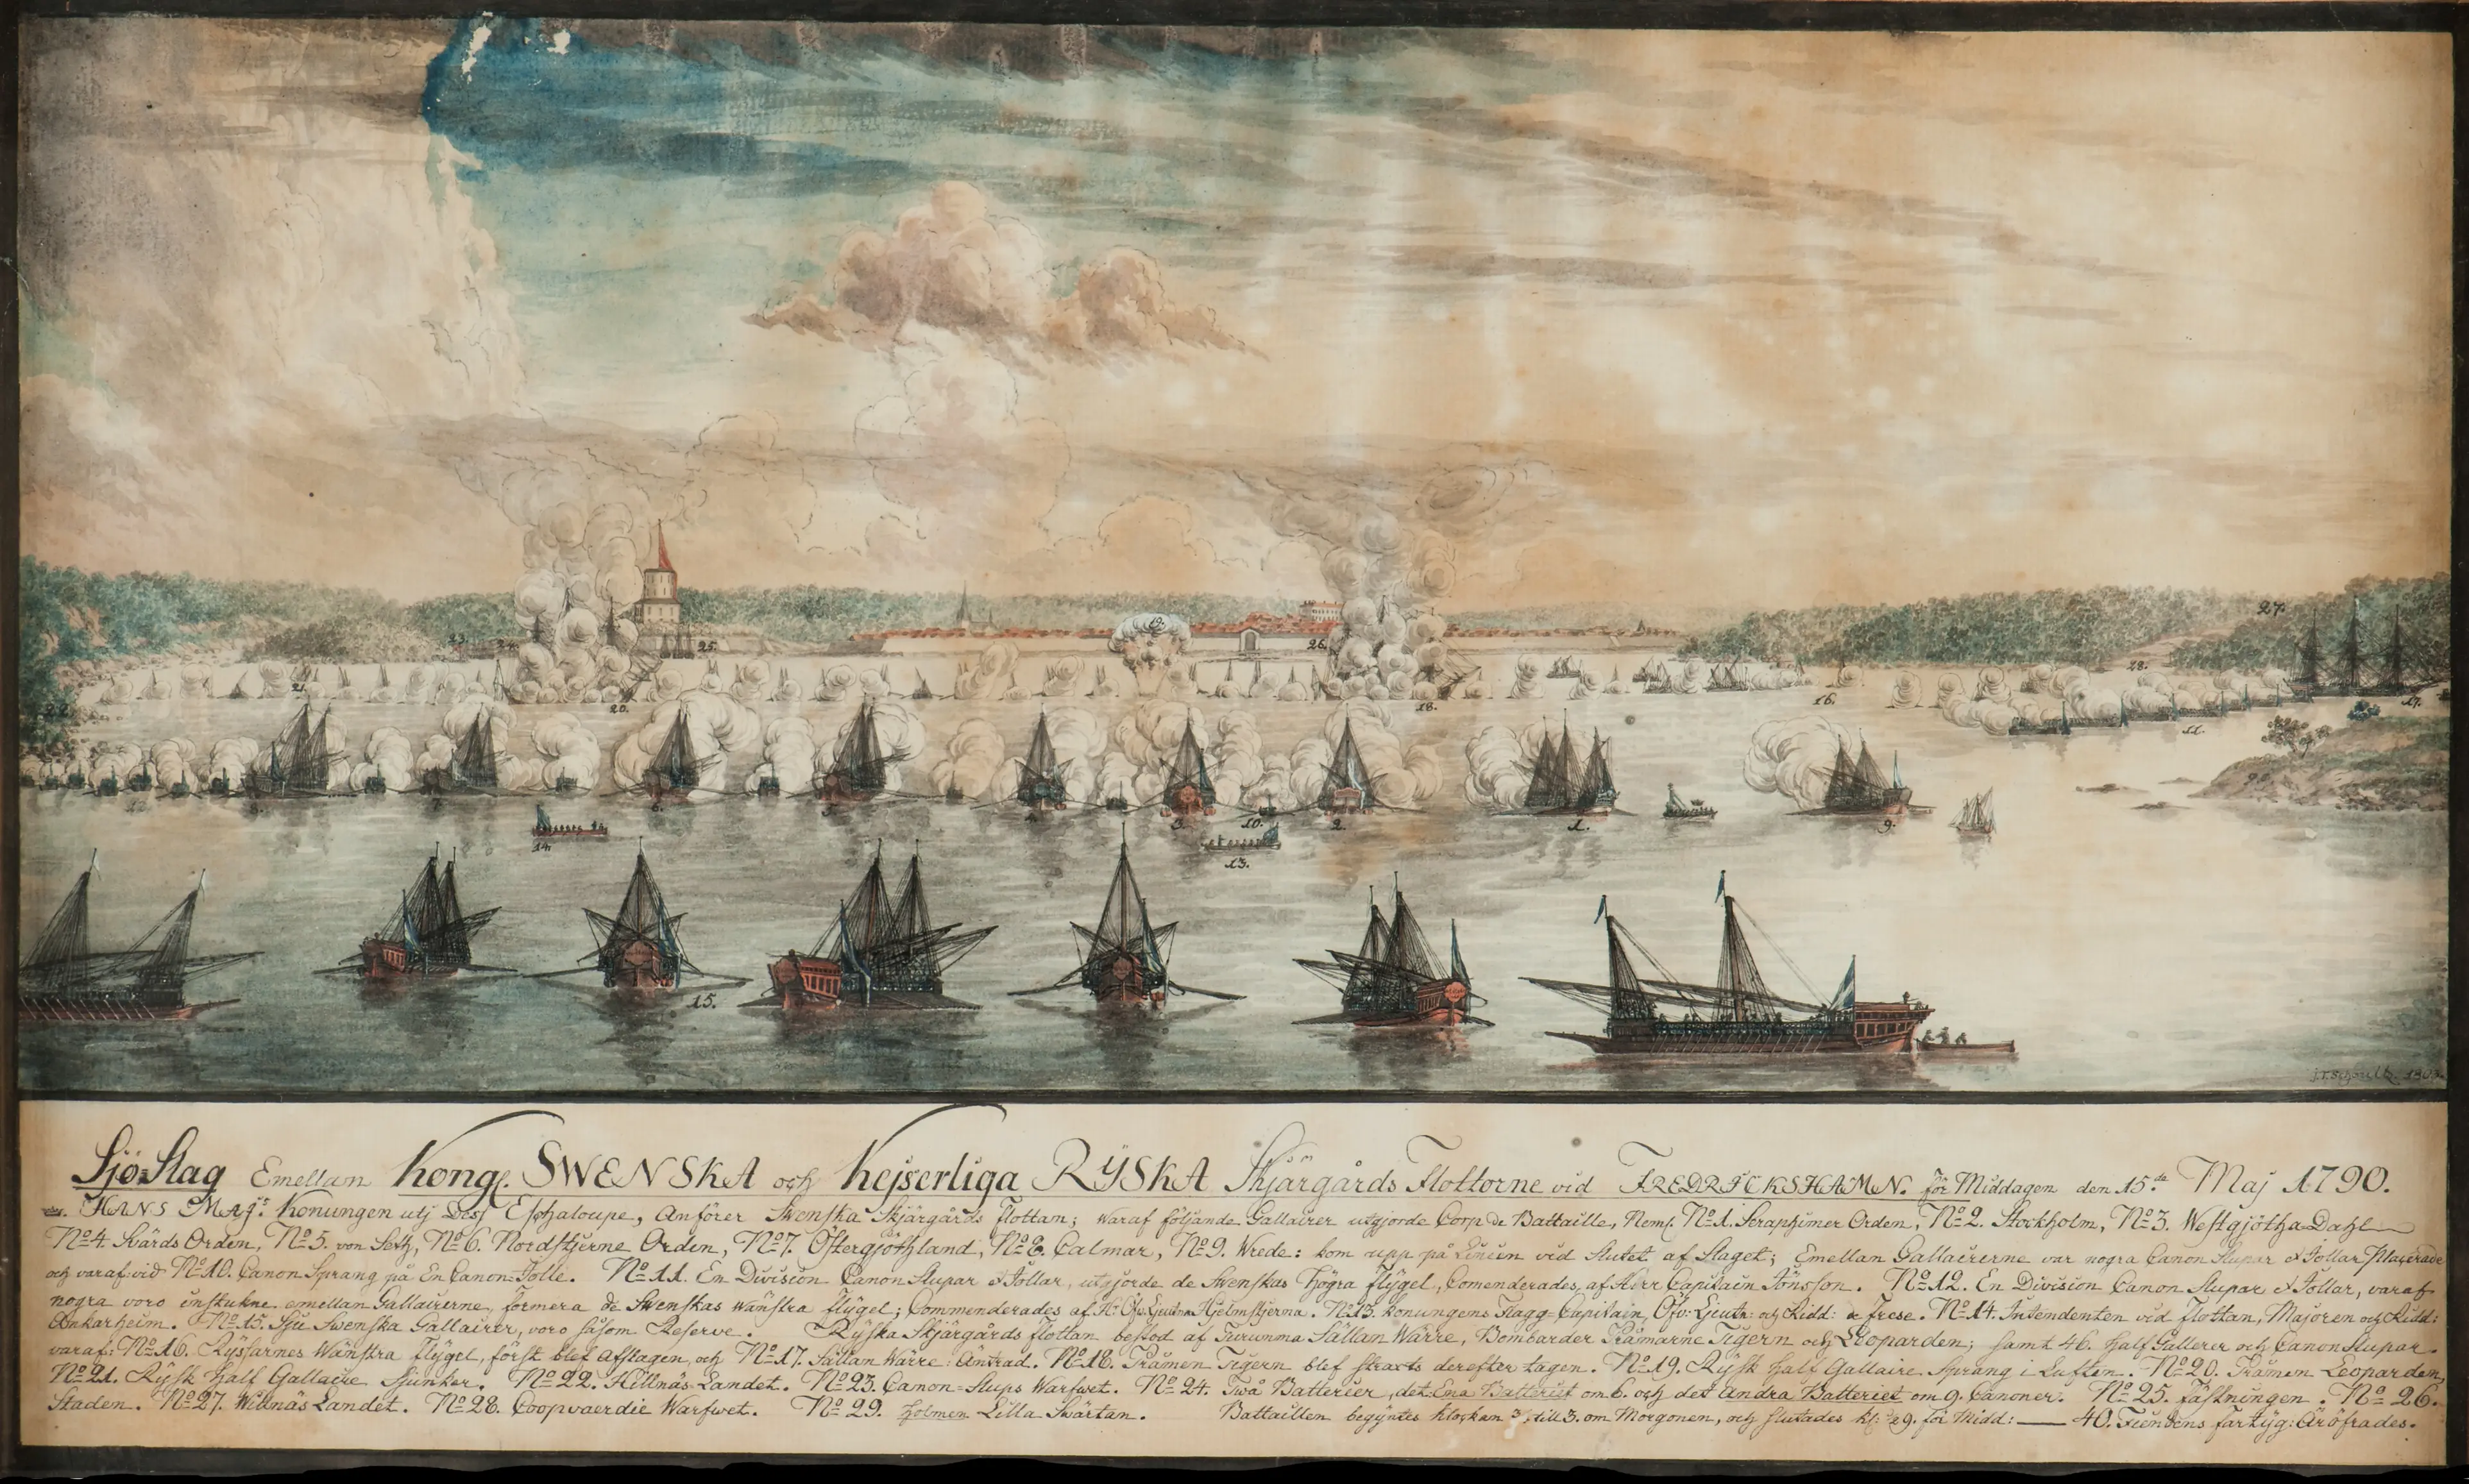 23.
24.
25.
19.
26.
27.
28.
21.
22.
20.
18.
16.
17.
11.
12.
8.
7.
6.
5.
4.
3.
10.
2.
1.
9.
29.
14.
13.
15.
J.T. Schoultz. 180
Sjö-Slag Emellan Kongl. SWENSKA och Kejserliga RYSKA Skjärgårds Flottorne vid FREDRICKSHAMN. för Middagen den 15de Maj 1790.
HANS Maj:ts Konungen utj Dess Esphaloupe, Anförer Swenska Skjärgårds flottan; waraf följande Gallairer utgjorde Corp de Battaille, Neml. No 1. Seraphimer Orden, No 2. Stockholm, No 3. Westgjötha-Dahl
No 4. Svärds Orden, No 5. von Seth, No 6. Nordstjerne Orden, No 7. Östergjöthland, No 8. Calmar, No 9. Wrede: kom upp på Linien vid Slutet af Slaget; Emellan Gallairerne var nogra Canon Slupar & Jollar Placerade
och varaf vid No 10. Canon Sprang på En Canon-Jolle. No 11. En Division Canon Slupar & Jollar, utgjorde de Swenskas Högra flygel, Comenderades af Herr Capitain Jönsson. No 12. En Division Canon Slupar & Jollar, varaf
nogra voro instukne emellan Gallairerne, formera de Swenskas wänstra flÿgel; Commenderades af Hjelmstjerna. No 13. Konungens Flagg-Capitain, Öfv: Ljeutn: och Ridd: de Frese. No 14. Intendenten vid flottan, Majoren och Ridd:
Ankarheim. No 15. Sju Swenska Gallairer, voro såsom Reserve. Ryska Skjärgårds flottan bestod af Turumma Sällan Wärre, Bombarder Prämarne Tigern och Leoparden; samt 46. Half Gallerer och Canon Slupar.
varaf: No 16. Ryssarnes Wänstra flygel, först blef afslagen, och No 17. Sällan Wärre: Äntrad. No 18. Pråmen Tigern blef straxts derefter tagen. No 19. Rysk half Gallaire, Sprang i Luften. No 20. Pråmen Leoparden,
No 21. Rÿsk Half Gallaire Sjunker. No 22. Hillnäs Landet. No 23. Canon-Slups Warfwet. No 24. Två Batterier, det Ena Batteriet om 6. och det andra Batteriet om 9. Canoner. No 25. Fästningen. No 26.
Staden. No 27. Willnäs Landet. No 28. Coopvaerdie Warfwet. No 29. Holmen Lilla Svartan. Battaillen begyntes klockan till 3. om Morgonen, och slutades kl: 9. för Midd: — 40. Fiendens fartÿg: Äröfrades.